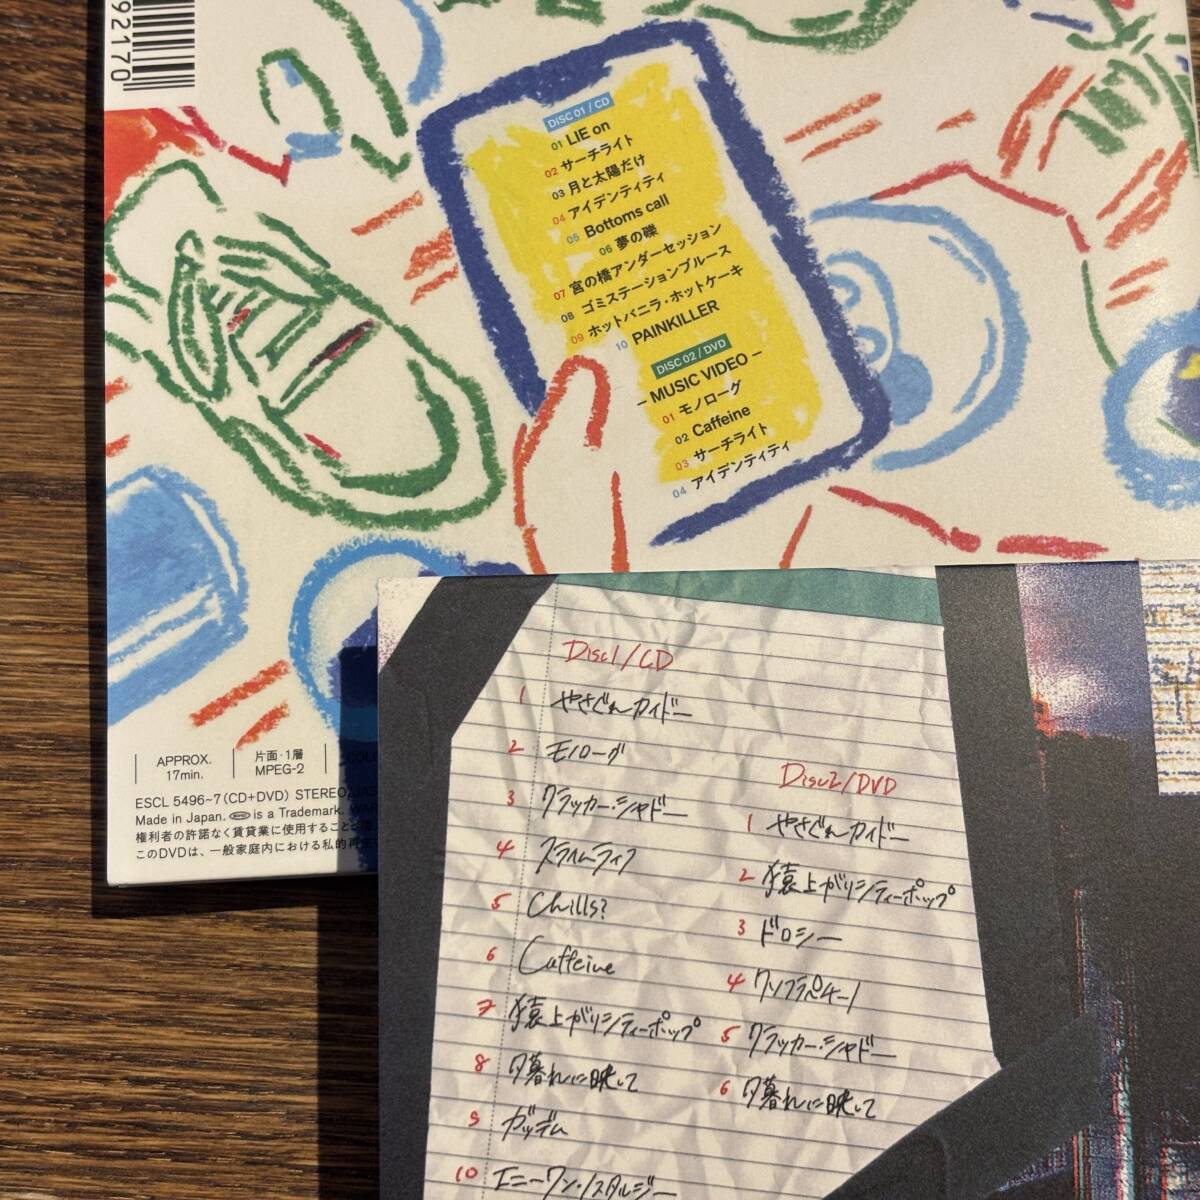 92170
DISC 01 / CD
01 LIE on
02 サーチライト
03 月と太陽だけ
04 アイデンティティ
05 Bottoms call
06 夢の礫
07 宮の橋アンダーセッション
08 ゴミステーションブルース
09 ホットバニラ・ホットケーキ
10 PAINKILLER
DISC 02 / DVD
– MUSIC VIDEO –
01 モノローグ
02 Caffeine
03 サーチライト
04 アイデンティティ
APPROX.
17min.
片面・1層
MPEG-2
ESCL 5496~7 (CD+DVD) STEREO
Made in Japan. is a Trademark.
権利者の許諾なく賃貸業に使用すること
このDVDは、一般家庭内における私的再
Disc1/CD
1 やさぐれカイドー
2 モノローグ
3 クラッカー・シャドー
4 スライムライフ
5 Chills?
6 Caffeine
7 猿上がりシティーポップ
8 夕暮れに映して
9 ガッデム
10 エニーワン・ノスタルジー
Disc2/DVD
1 やさぐれカイドー
2 猿上がりシティーポップ
3 ドロシー
4 ワンフライデーナイト
5 クラッカー・シャドー
6 夕暮れに映して